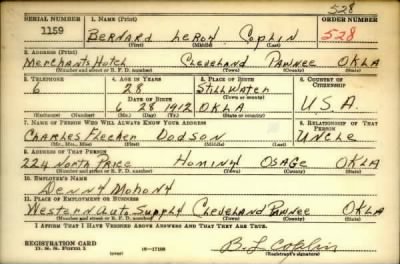 528
SERIAL NUMBER 1. NAME (Print) ORDER NUMBER
1159 BERNARD LEROY COPLIN 528
(First) (Middle) (Last)
2. ADDRESS (Print)
Merchants Hotel Cleveland Pawnee OKLA
(Number and street or R. F. D. number) (Town) (County) (State)
3. TELEPHONE 4. AGE IN YEARS 5. PLACE OF BIRTH 6. COUNTRY OF CITIZENSHIP
6 28 Stillwater
DATE OF BIRTH (Town or county)
6 28 1912 OKLA U.S.A.
(Mo.) (Day) (Yr.) (State or country)
7. NAME OF PERSON WHO WILL ALWAYS KNOW YOUR ADDRESS 8. RELATIONSHIP OF THAT PERSON
Charles Fletcher Dodson Uncle
(Mr., Mrs., Miss) (First) (Middle) (Last)
9. ADDRESS OF THAT PERSON
224 North Price Hominy Osage OKLA
(Number and street or R. F. D. number) (Town) (County) (State)
10. EMPLOYER'S NAME
Denny Mohony
11. PLACE OF EMPLOYMENT OR BUSINESS
Western Auto Supply Cleveland Pawnee OKLA
(Number and street or R. F. D. number) (Town) (County) (State)
I AFFIRM THAT I HAVE VERIFIED ABOVE ANSWERS AND THAT THEY ARE TRUE.
REGISTRATION CARD
D. S. S. Form 1 (over) 16-17105 B. L. Coplin
(Registrant's signature)